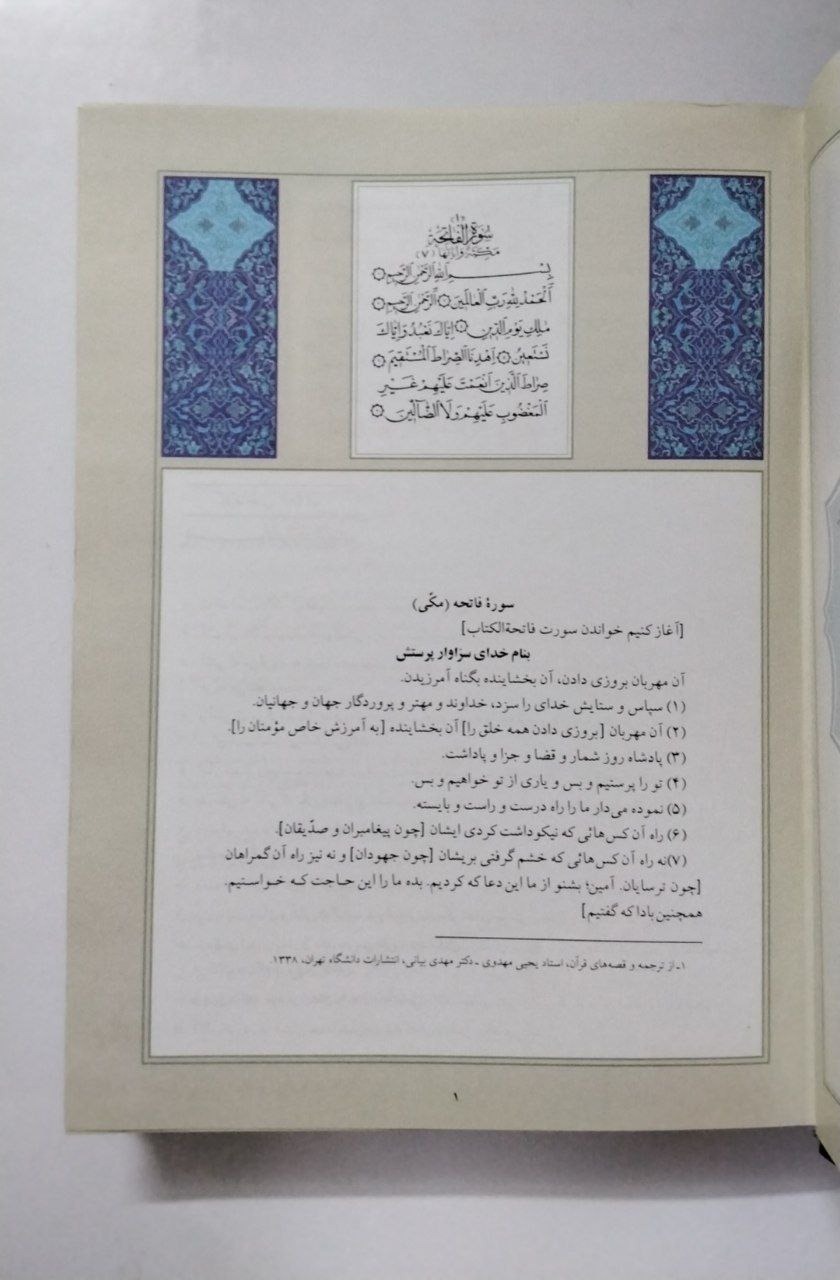 (۱)
سُورَةُ الْفَاتِحَةِ
مَكِّيَّةٌ وَآيَاتُهَا (٧)
بِسْمِ اللهِ الرَّحْمٰنِ الرَّحِيمِ
اَلْحَمْدُ لِلهِ رَبِّ الْعَالَمِينَ الرَّحْمٰنِ الرَّحِيمِ
مٰلِكِ يَوْمِ الدِّينِ اِيَّاكَ نَعْبُدُ وَ اِيَّاكَ
نَسْتَعِينُ اِهْدِنَا الصِّرَاطَ الْمُسْتَقِيمَ
صِرَاطَ الَّذِينَ اَنْعَمْتَ عَلَيْهِمْ غَيْرِ
الْمَغْضُوبِ عَلَيْهِمْ وَلَا الضَّآلِّينَ
سورهٔ فاتحه (مکّی)
[آغاز کنیم خواندن سورت فاتحةالکتاب]
بنام خدای سزاوار پرستش
آن مهربان بروزی دادن، آن بخشاینده بگناه آمرزیدن.
(۱) سپاس و ستایش خدای را سزد، خداوند و مهتر و پروردگار جهان و جهانیان.
(۲) آن مهربان [بروزی دادن همه خلق را] آن بخشاینده [به آمرزش خاص مؤمنان را].
(۳) پادشاه روز شمار و قضا و جزا و پاداشت.
(۴) تو را پرستیم و بس و یاری از تو خواهیم و بس.
(۵) نموده می‌دار ما را راه درست و راست و بایسته.
(۶) راه آن کس‌هائی که نیکوداشت کردی ایشان [چون پیغامبران و صدّیقان].
(۷)نه راه آن کس‌هائی که خشم گرفتی بریشان [چون جهودان] و نه نیز راه آن گمراهان
[چون ترسایان. آمین؛ بشنو از ما این دعا که کردیم. بده ما را این حاجت که خواستیم.
همچنین بادا که گفتیم]
۱ـ از ترجمه و قصه‌های قرآن، استاد یحیی مهدوی ـ دکتر مهدی بیانی، انتشارات دانشگاه تهران، ۱۳۳۸.
۱